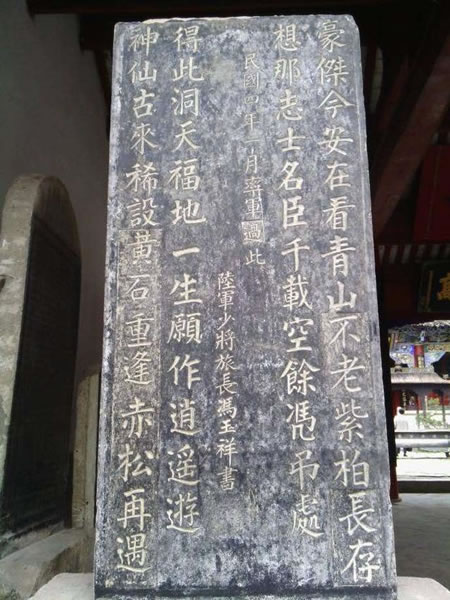 豪傑今安在看青山不老紫柏長存
想那志士名臣千載空餘憑吊處
民國四年月率軍過此
陸軍少將旅長馮玉祥書
得此洞天福地一生願作逍遥遊
神仙古來稀設黃石重逢赤松再遇